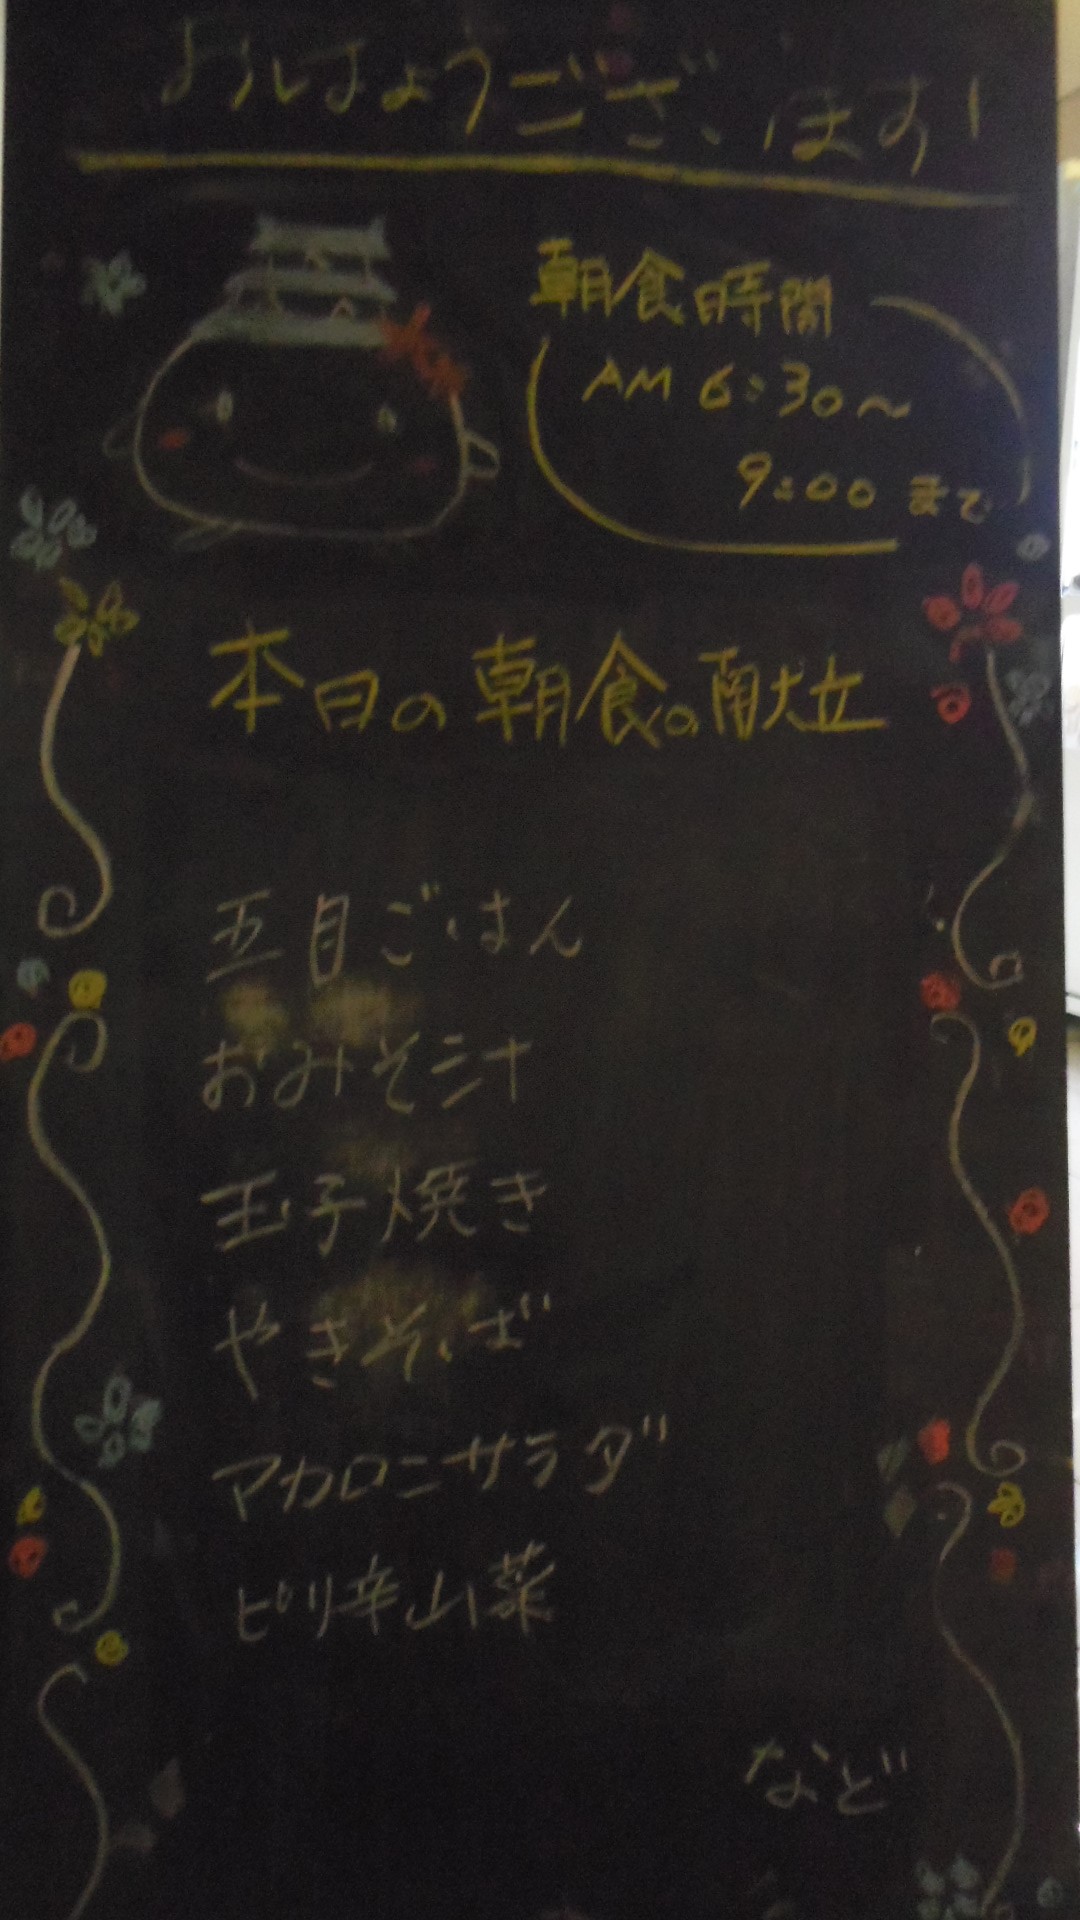 おはようございます!
朝食時間
AM 6:30~
9:00 まで
本日の朝食の献立
五目ごはん
おみそ汁
玉子焼き
やきそば
マカロニサラダ
ピリ辛山菜
など